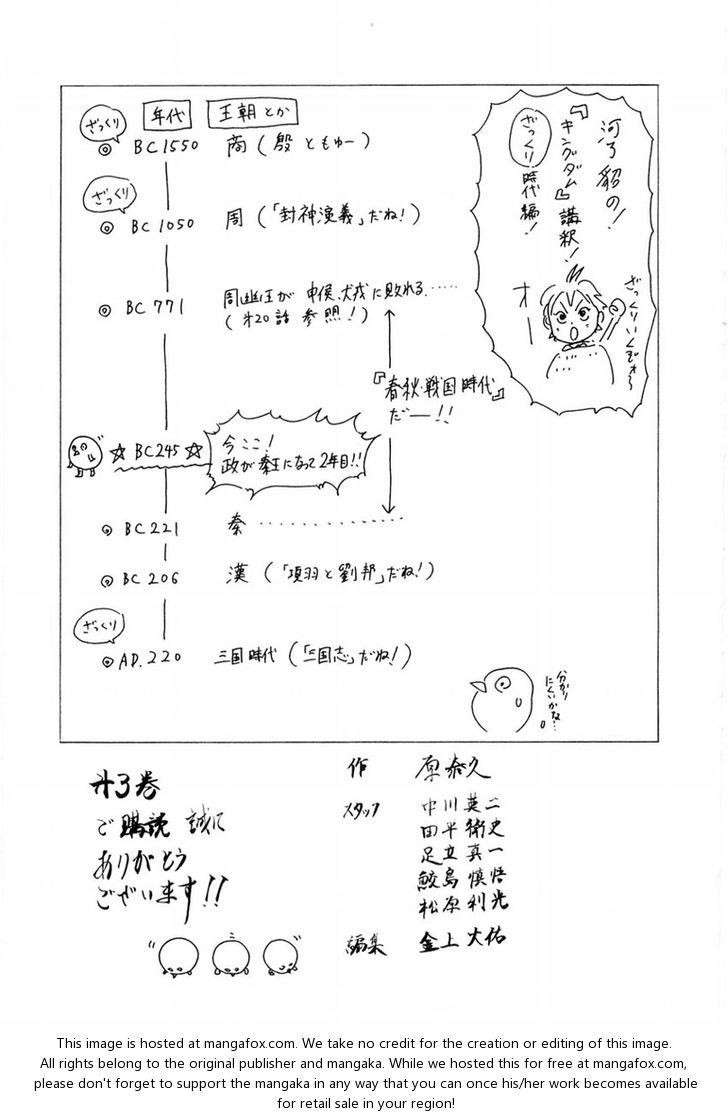 河了貂の!
『キングダム』講釈!
ざっくり時代編!
ざっくりいくぞォ〜
オー
年代 王朝とか
ざっくり
BC1550 商(殷ともゆー)
ざっくり
BC1050 周(「封神演義」だね!)
BC771 周幽王が申侯、犬戎に敗れる……
(オ20話参照!)
『春秋・戦国時代』
だー!!
☆BC245☆ 今ここ!
政が秦王になって2年目!!
BC221 秦
BC206 漢(「項羽と劉邦」だね!)
ざっくり
AD.220 三国時代(「三国志」だね!)
分かり
にくいかな…
オ3巻
ご購読 誠に
ありがとう
ございます!!
作 原泰久
スタッフ 中川英二
田平衛史
足立真一
鮫島慎悟
松原利光
編集 金上大佑
This image is hosted at mangafox.com. We take no credit for the creation or editing of this image.
All rights belong to the original publisher and mangaka. While we hosted this for free at mangafox.com,
please don't forget to support the mangaka in any way that you can once his/her work becomes available
for retail sale in your region!